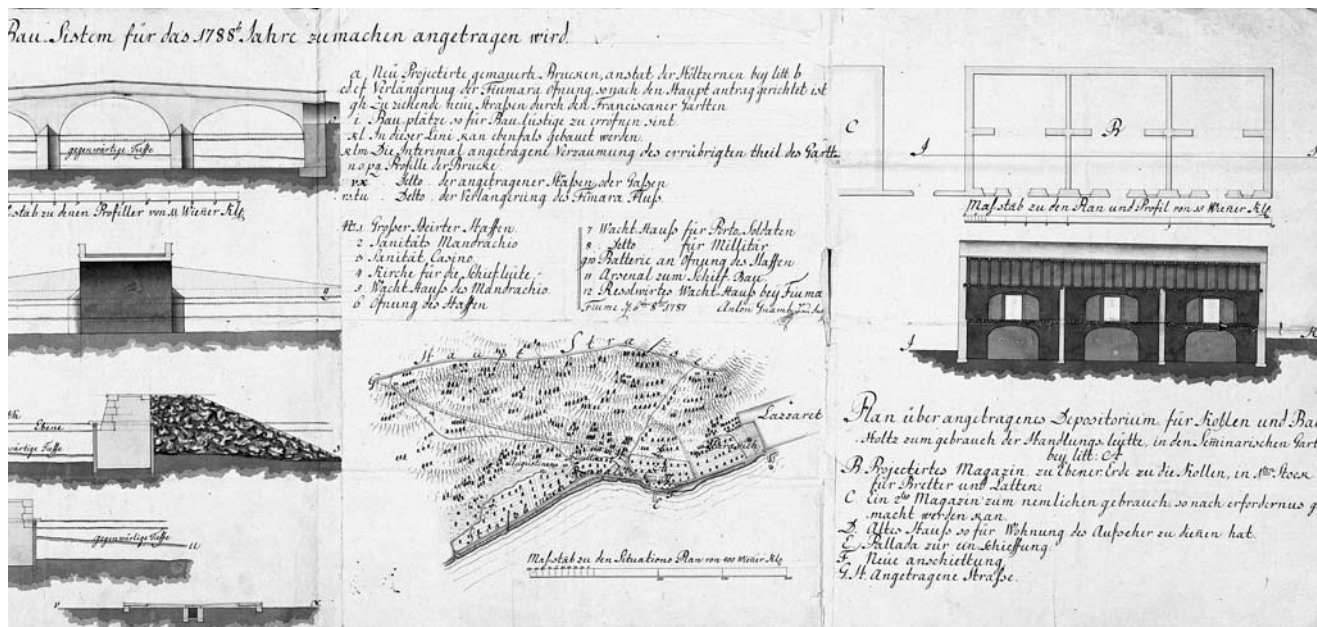 Bau Sistem für das 1788te Jahre zu machen angetragen wird.
a Neu Projectirte gemauerte Brucken, anstat der Höltzernen bey litt b
cdef Verlängirung der Fiumara Ofnung, so nach den Haupt antrag gerichtet ist
gh Zu ziehende neue Strassen durch den Franciscaner Gartten
i Bauplätze so für Baulustige zu eröfnen sint
kl In diser Lini kan ebenfals gebauet werden.
klm Die Interimal angetragene Verzaumung des errübrigten theil des Gartt
nopq Profille der Brucke
vx Detto der angetragener Strassen, oder Gassen
rstu Detto der Verlängirung des Fiumara Fluss.
No 1 Grosser Staffen
2 Sanitäts Mandrachio
3 Sanität Casino
4 Kirche für die Schiefleyite
5 Wacht Hauss des Mandrachio
6 Ofnung des Haffen
7 Wacht Hauss für Porto Soldaten
8 Detto für Millitär
9 10 Batterie an Ofnung des Haffen
11 Arsenal zum Schiff Bau
12 Wacht Hauss bey Fiuma
Fiume 8br 1787 Anton Gnamb
gegenwärtige Tieffe
stab zu denen Profiller von 11 Wieñer Klf
q
Ebene
wärtige Tieffe
gegenwärtige Tieffe
u
v x
Haupt Strasse
G
Lazzaret
Masstab zu den Situations Plan von 400 Wieñer Klf
C
B
A
Masstab zu den Plan und Profil von 10 Wieñer Klf
A
Plan über angetragenes Depositorium für Kollen und Bau
Holtz zum gebrauch der Handlungs leyitte, in den Seminarischen Gart
bey litt: A
B Projectirtes Magazin zu ebener Erde zu die Kollen, in Stock
für Bretter und Latten.
C Ein 2tes Magazin zum nemlichen gebrauch, so nach erfordernus g
macht werden kan
D Altes Hauss so für Wohnung des Aufseher zu dienen hat.
E Pallada zur ein schieffung
F Neue anschiettung
G H Angetragene Strasse.